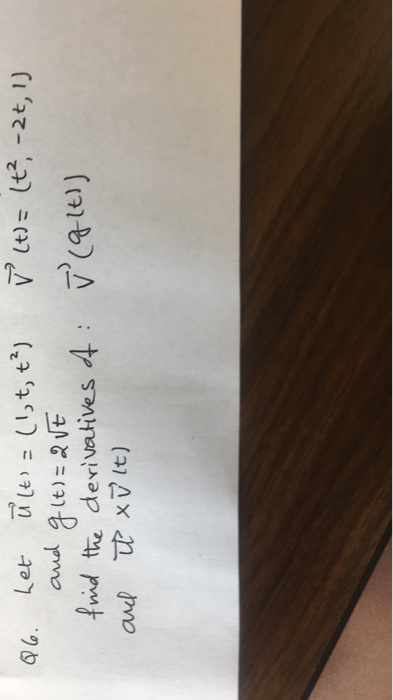 Q6. Let u⃗(t) = (1, t, t²) v⃗(t) = (t², -2t, 1)
and g(t) = 2√t
find the derivatives of : v⃗(g(t))
and u⃗ × v⃗(t)